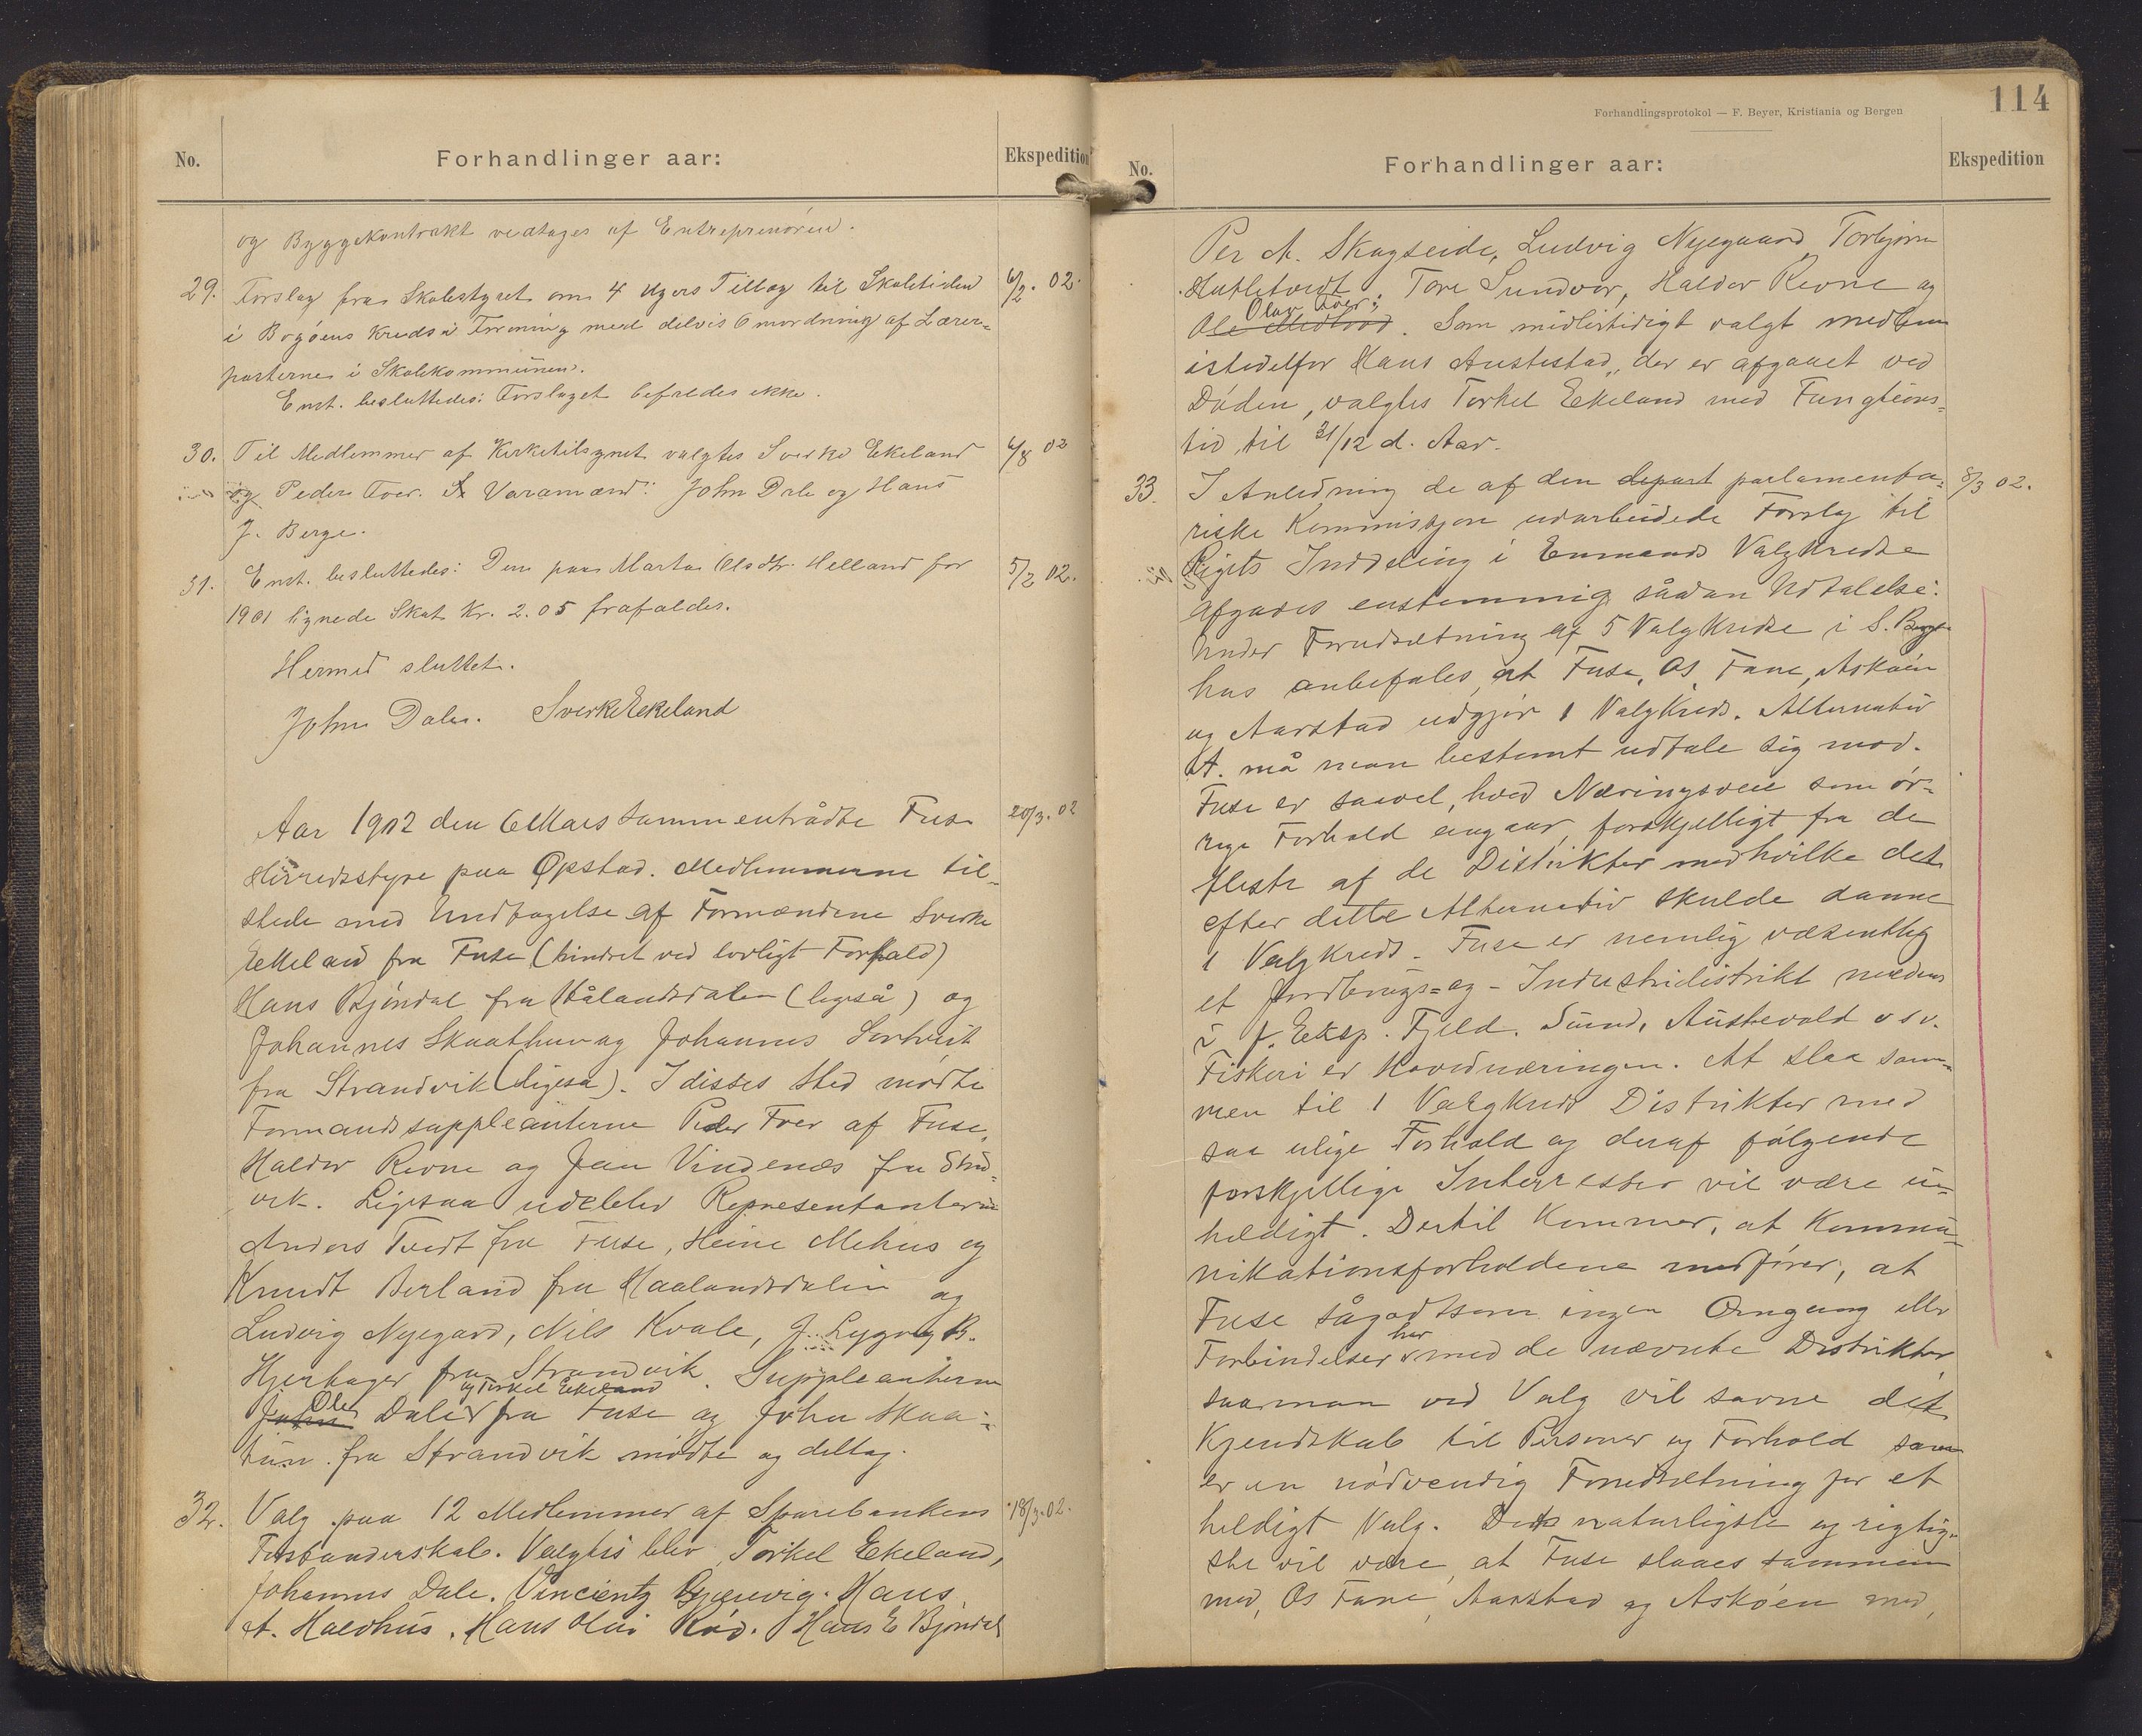 No.
Forhandlinger aar:
Ekspedition
og Byggekontrakt vedtages af Entreprenøren.
29. Forslag fra Skolestyret om 4 Ugers Tillæg til Skoletiden 6/2. 02.
i Bogøens Kreds i Forening med delvis Omordning af Lærer-
posterne i Skolekommunen.
Enst. besluttedes: Forslaget befaldes ikke.
30. Til Medlemmer af Kirketilsynet valgtes Sverke Ekeland 6/8 02
og Peder Tver. Varamænd: John Dale og Hans
J. Berge.
31. Enst. besluttedes: Den paa Marta Olsdtr. Helland for 5/2 02.
1901 lignede Skat Kr. 2.05 frafaldes.
Hermed sluttet.
John Dale. Sverke Ekeland
Aar 1902 den 6 Mars sammentrådte Fuse 20/3. 02
Herredsstyre paa Opstad. Medlemmerne til-
stede med Undtagelse af Formændene Sverke
Eekeland fra Fuse (hindret ved lovligt Forfald)
Hans Bjöndal fra Hålandsdalen (ligeså) og
Johannes Skaathun og Johannes Sortveit
fra Strandvik (ligesa). I disses Sted mødte
Formandssuppleanterne Peder Tver af Fuse,
Haldor Revne og Jan Vindenæs fra Strd-
vik. Ligesaa udeblev Representanterne
Anders Tvedt fra Fuse, Heine Mehus og
Knudt Berland fra Haalandsdalen og
Ludvig Nyegard, Nils Kvale, J. Lygre og B.
Hjertager fra Strandvik. Suppleanterne
Ole og Torkel Ekeland
John Dale fra Fuse og John Skaa-
tun fra Strandvik mødte og deltog.
32. Valg paa 12 Medlemmer af Sparebankens 18/3. 02.
Forstanderskab. Valgtes blev Torkel Ekeland,
Johannes Dale. Vincientz Gjerevig. Hans
A. Holdhus. Hans Olai Rød. Hans E Bjöndal
Forhandlingsprotokol — F. Beyer, Kristiania og Bergen
114
No.
Forhandlinger aar:
Ekspedition
Per A. Skagseide, Ludvig Nyegaard, Torbjørn
Hatletvedt, Tore Sundvor, Haldor Revne og
Olav Tver:
Ole. Som midlertidigt valgt medlem
istedetfor Hans Austestad, der er afgaaet ved
Døden, valgtes Torkel Ekeland med Fungtions-
tid til 31/12 d. Aar.
33. I Anledning de af den depart parlamenta- 8/3 02.
riske Kommission udarbeidede Forslag til
Rigets Inddeling i Enmands Valgkredse
afgaves enstemmig sådan Udtalelse:
Under Forudsætning af 5 Valgkredse i S. Berge
hus anbefales at Fuse, Os, Fane, Askøen
og Aarstad udgjør 1 Valgkreds. Alternativ
A. må man bestemt udtale sig mod.
Fuse er saavel, hvad Næringsveie som øv-
rige Forhold angaar, forskjelligt fra de
fleste af de Distrikter med hvilke det
efter dette Alternativ skulde danne
1 Valgkreds. Fuse er nemlig væsentlig
et Jordbrugs- og Industridistrikt medens
i f. Eeksp. Fjeld. Sund, Austevold osv.
Fiskeri er Hovednæringen. At slaa sam-
men til 1 Valgkreds Distrikter med
saa ulige Forhold og deraf følgende
forskjellige Interresser vil være u-
heldigt. Dertil kommer, at Kommu-
nikationsforholdene medfører, at
Fuse sågodtsom ingen Omgang eller
har
Forbindelser med de nævnte Distrikter
saa man ved Valg vil savne det
Kjendskab til Personer og Forhold som
er en nødvendig Forudsætning for et
heldigt Valg. Det naturligste og rigtig-
ste vil være, at Fuse slaaes sammen
med, Os Fane, Aarstad og Askøen med,